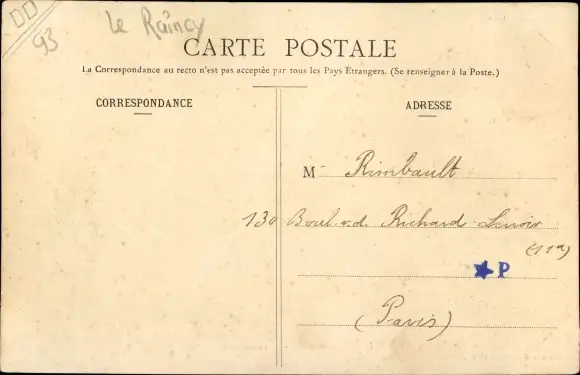 DD
93
Le Raincy
CARTE POSTALE
La Correspondance au recto n'est pas acceptée par tous les Pays Étrangers. (Se renseigner à la Poste.)
CORRESPONDANCE
ADRESSE
M Rimbault
130 Boulvd. Richard Lenoir
(11e)
★P
(Paris)